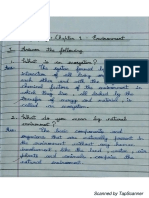 Chapter 1 : Environment
I. Answer the following
1. What is an ecosystem?
Ans. The system formed by the
interaction of all living organisms
with each other and with the
physical and chemical factors of
the environment in
which they live, all linked by
the transfer of energy and
material, is called
ecosystem.
2. What do you mean by natural
environment?
Ans. The basic components and
organisms that are present in
the environment without any human
interference like land, air, water,
plants and animals comprise the
natural environment.
Scanned by TapScanner